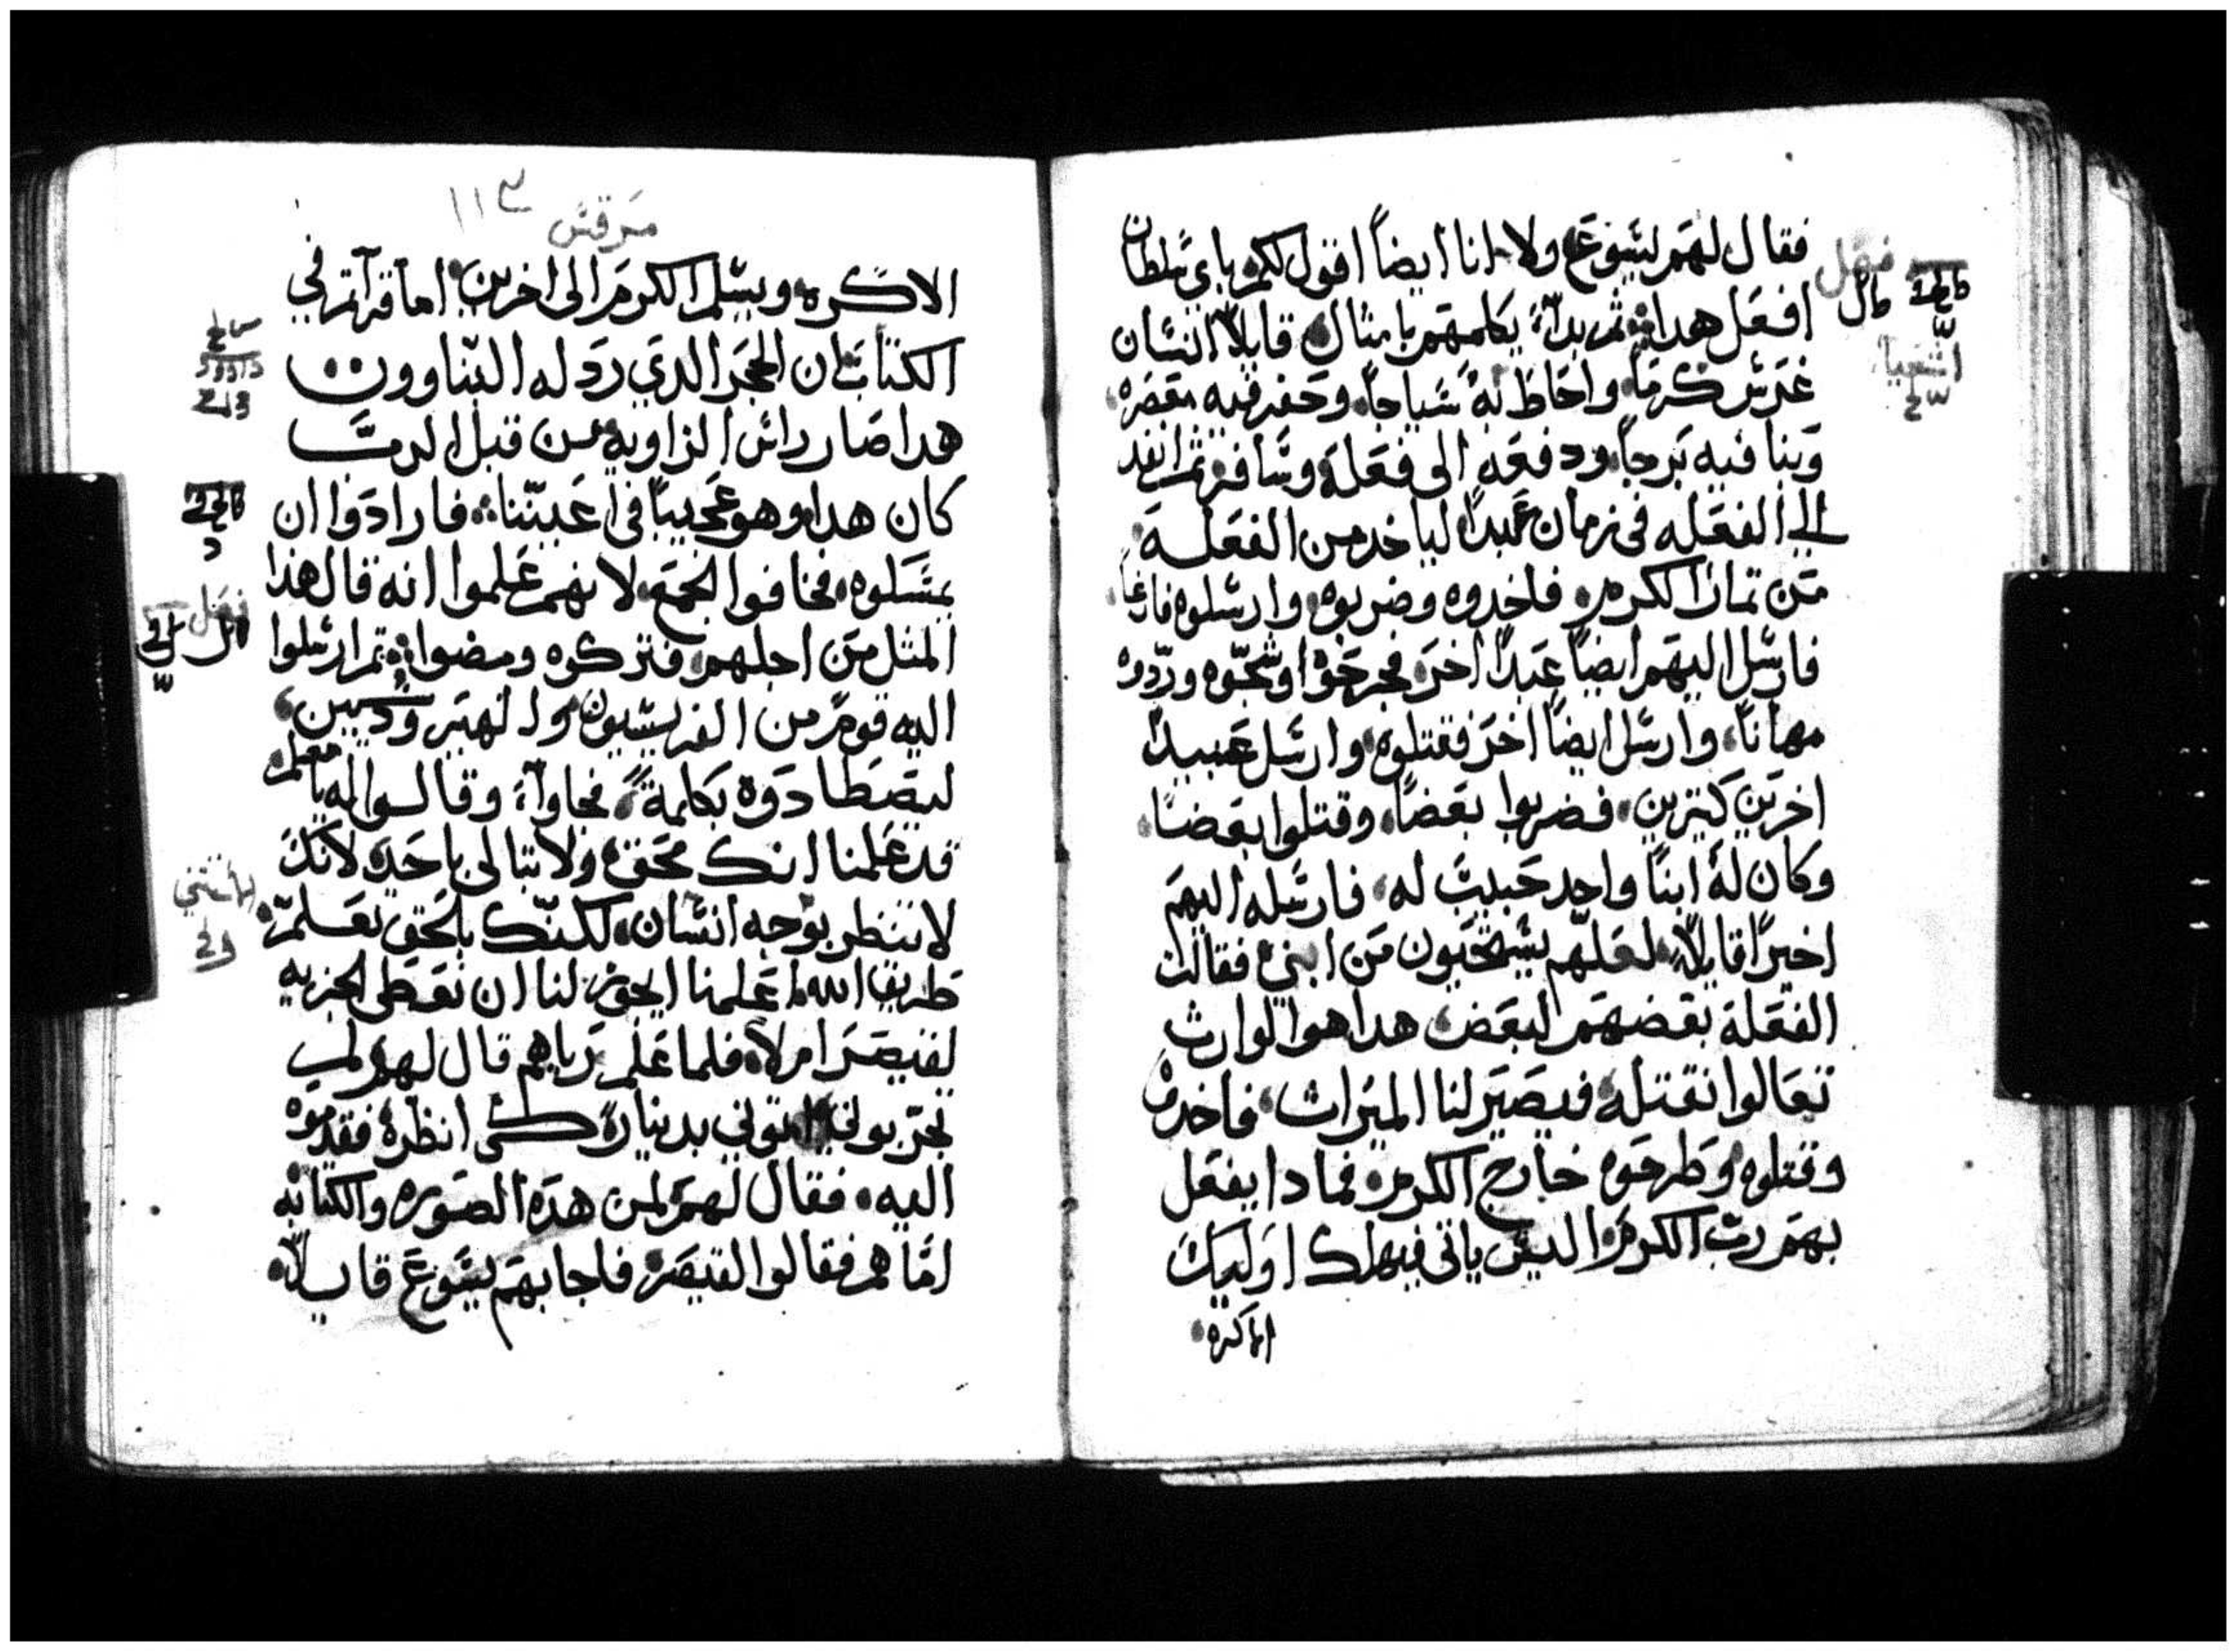 فقال لهم يسوع ولا انا ايضاً اقول لكم باي سلطان
افعل هدا ثم بدأ يكلمهم بامثال قايلاً انسان
غرس كرماً واحاط به سياجاً وحفر فيه معصره
وبنا فيه برجاً ودفعه الى فعلة وسافر ثم انفد
الي الفعله في زمان عبداً لياخد من الفعلة
من تمار الكرم فاخدوه وضربوه وارسلوه فارغاً
فارسل اليهم ايضاً عبداً اخر فجرحوا وشجّوه وردّوه
مهاناً وارسل ايضاً اخر فقتلوه وارسل عبيداً
اخرين كتيرين فضربوا بعضاً وقتلوا بعضاً
وكان له ابناً واحد حبيب له فارسله اليهم
اخيراً قايلاً لعلّهم يستحيون من ابني فقالت
الفعلة بعضهم لبعض هدا هوا الوارث
تعالوا نقتله فيصير لنا الميرات فاخدوه
وقتلوه وطرحوه خارج الكرم فمادا يفعل
بهم رب الكرم اليس ياتي فيهلك اوليك
الاكره
فصل
اشعيا
مرقس
١١٣
الاكره ويسلم الكرم الى اخرين اما قرآتم في
الكتاب ان الحجر الدي ردله البنّاوون
هدا صار رائس الزاويه من قبل الرب
كان هدا وهو عجيباً في اعيننا فارادوا ان
يمسكوه فخافوا الجمع لانهم علموا انه قال هذا
المثل من اجلهم فتركوه ومضوا ثم ارسلوا
اليه قوم من الفريسيون والهيرودسيين
ليصطادوه بكلمة فجاوآ وقالوا له يا معلم
قد علمنا انك محق ولا تبالي باحد لانك
لا تنظر بوجه انسان لكنّك بالحق تعلم
طريق الله اعلمنا ايجوز لنا ان نعطي الجزيه
لقيصر ام لا فلما علم رياهم قال لهم لم
تجربوني اتوني بدينار كي انظره فقدموه
اليه فقال لهم لمن هده الصوره والكتابه
امّا هم فقالوا لقيصر فاجابهم يسوع قايلاً
فصل